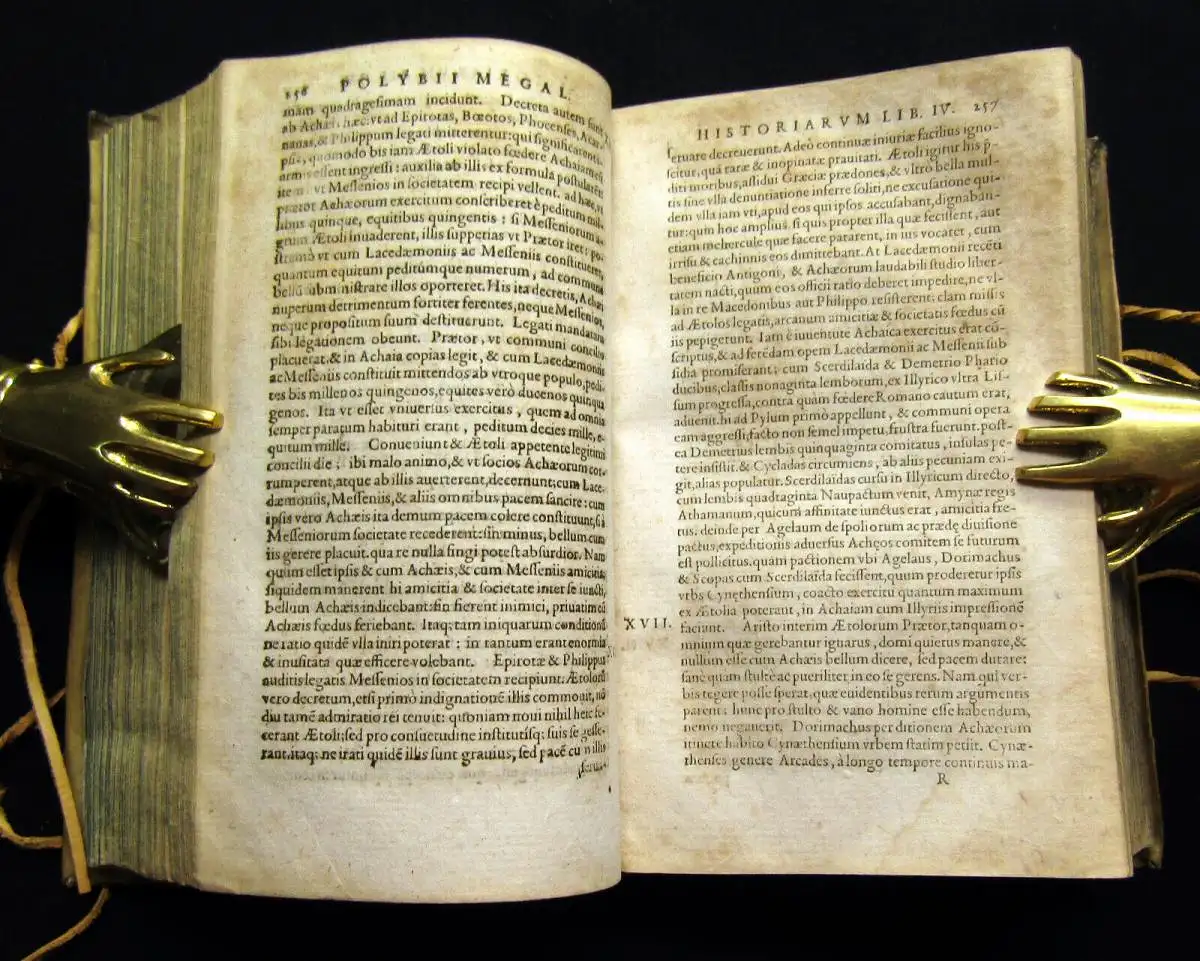 256 POLYBII MEGAL.
mam quadragesimam incidunt. Decreta autem sunt
ab Achæis hæc: vt ad Epirotas, Bœotos, Phocenses, Acar-
nanas, & Philippum legati mitterentur: qui significarent
quomodo bis iam Ætoli violato fœdere Achaiam
armis essent ingressi: auxilia ab illis ex formula postularent
item vt Messenios in societatem recipi vellent. ad hæc, vt
prætor Achæorum exercitum conscriberet è peditum mil-
libus quinque, equitibus quingentis: si Messeniorum a-
grum Ætoli inuaderent, illis suppetias vt Prætor iret: po-
stremò vt cum Lacedæmoniis ac Messeniis constitueret,
quantum equitum peditumque numerum, ad commune
bellũ subministrare illos oporteret. His ita decretis, Achæi
nuperum detrimentum fortiter ferentes, neque Messenios,
neque propositum suum destituerunt. Legati mandatam
sibi legationem obeunt. Prætor, vt communi concilio
placuerat, & in Achaia copias legit, & cum Lacedæmoniis
ac Messeniis constituit mittendos ab vtroque populo, pedi-
tes bis millenos quingenos, equites verò ducenos quinqua
genos. Ita vt esset vniuersus exercitus, quem ad omnia
semper paratum habituri erant, peditum decies mille, e-
quitum mille. Conueniunt & Ætoli appetente legitimi
concilii die: ibi malo animo, & vt socios Achæorum cor-
rumperent, atque ab illis auerterent, decernunt: cum Lace-
dæmoniis, Messeniis, & aliis omnibus pacem sancire: cum
ipsis vero Achæis ita demum pacem colere constituunt, si à
Messeniorum societate recederent: sin minus, bellum cum
iis gerere placuit. qua re nulla fingi potest absurdior. Nam
quum esset ipsis & cum Achæis, & cum Messeniis amicitia,
siquidem manerent hi amicitia & societate inter se iuncti,
bellum Achæis indicebant: sin fierent inimici, priuatim cũ
Achæis fœdus feriebant. Itaq; tam iniquarum conditionũ
ne ratio quidẽ vlla iniri poterat: in tantum erant enormia
& inusitata quæ efficere volebant. Epirotæ & Philippus
auditis legatis Messenios in societatem recipiunt. Ætolorũ
vero decretum, etsi primò indignationẽ illis commouit, nõ
diu tamẽ admiratio rei tenuit: quoniam noui nihil hæc fe-
cerant Ætoli; sed pro consuetudine institutisq; suis se gesse-
rant. itaq; ne irati quidẽ illis sunt grauius, sed pacẽ cũ illis
seruа-
HISTORIARVM LIB. IV. 257
seruare decreuerunt. Adeò continuæ iniuriæ facilius igno-
scitur, quâ raræ & inopinatæ prauitati. Ætoli igitur his p̃-
diti moribus, assidui Græciæ prædones, & vltrò bella mul-
tis sine vlla denuntiatione inferre soliti, ne excusatione qui-
dem vlla iam vti, apud eos qui ipsos accusabant, dignaban-
tur: quin hoc amplius si quis propter illa quæ fecissent, aut
etiam mehercule quæ facere pararent, in ius vocaret, cum
irrisu & cachinnis eos dimittebant. At Lacedæmonii recẽti
beneficio Antigoni, & Achæorum laudabili studio liber-
tatem nacti, quum eos officii ratio deberet impedire, ne vl-
la in re Macedonibus aut Philippo resisterent: clam missis
ad Ætolos legatis, arcanum amicitiæ & societatis fœdus cũ
iis pepigerunt. Iam è iuuentute Achaica exercitus erat cõ-
scriptus, & ad ferẽdam opem Lacedæmonii ac Messenii sub
sidia promiserant: cum Scerdilaïda & Demetrio Phario
ducibus, classis nonaginta lemborum, ex Illyrico vltra Lis-
sum progressa, contra quàm fœdere Romano cautum erat,
aduenit. hi ad Pylum primò appellunt, & communi opera
eam aggressi, facto non semel impetu, frustra fuerunt. post-
ea Demetrius lembis quinquaginta comitatus, insulas pe-
tere insistit: & Cycladas circumiens, ab aliis pecuniam exi-
git, alias populatur. Scerdilaïdas cursu in Illyricum directo,
cum lembis quadraginta Naupactum venit, Amynæ regis
Athamanum, quicum affinitate iunctus erat, amicitia fre-
tus. deinde per Agelaum de spoliorum ac prædę diuisione
pactus, expeditionis aduersus Achęos comitem se futurum
est pollicitus. quam pactionem vbi Agelaus, Dorimachus
& Scopas cum Scerdilaïda fecissent, quum proderetur ipsis
vrbs Cynęthensium, coacto exercitu quantum maximum
ex Ætolia poterant, in Achaiam cum Illyriis impressionẽ
XVII. faciunt. Aristo interim Ætolorum Prætor, tanquam o-
mnium quæ gerebantur ignarus, domi quietus manere, &
nullum esse cum Achæis bellum dicere, sed pacem durare:
sanè quàm stultè ac pueriliter in eo se gerens. Nam qui ver-
bis tegere posse sperat, quæ euidentibus rerum argumentis
patent: hunc pro stulto & vano homine esse habendum,
nemo negauerit. Dorimachus per ditionem Achæorum
itinere habito Cynæthensium vrbem statim petiit. Cynæ-
thenses genere Arcades, à longo tempore continuis ma-
R